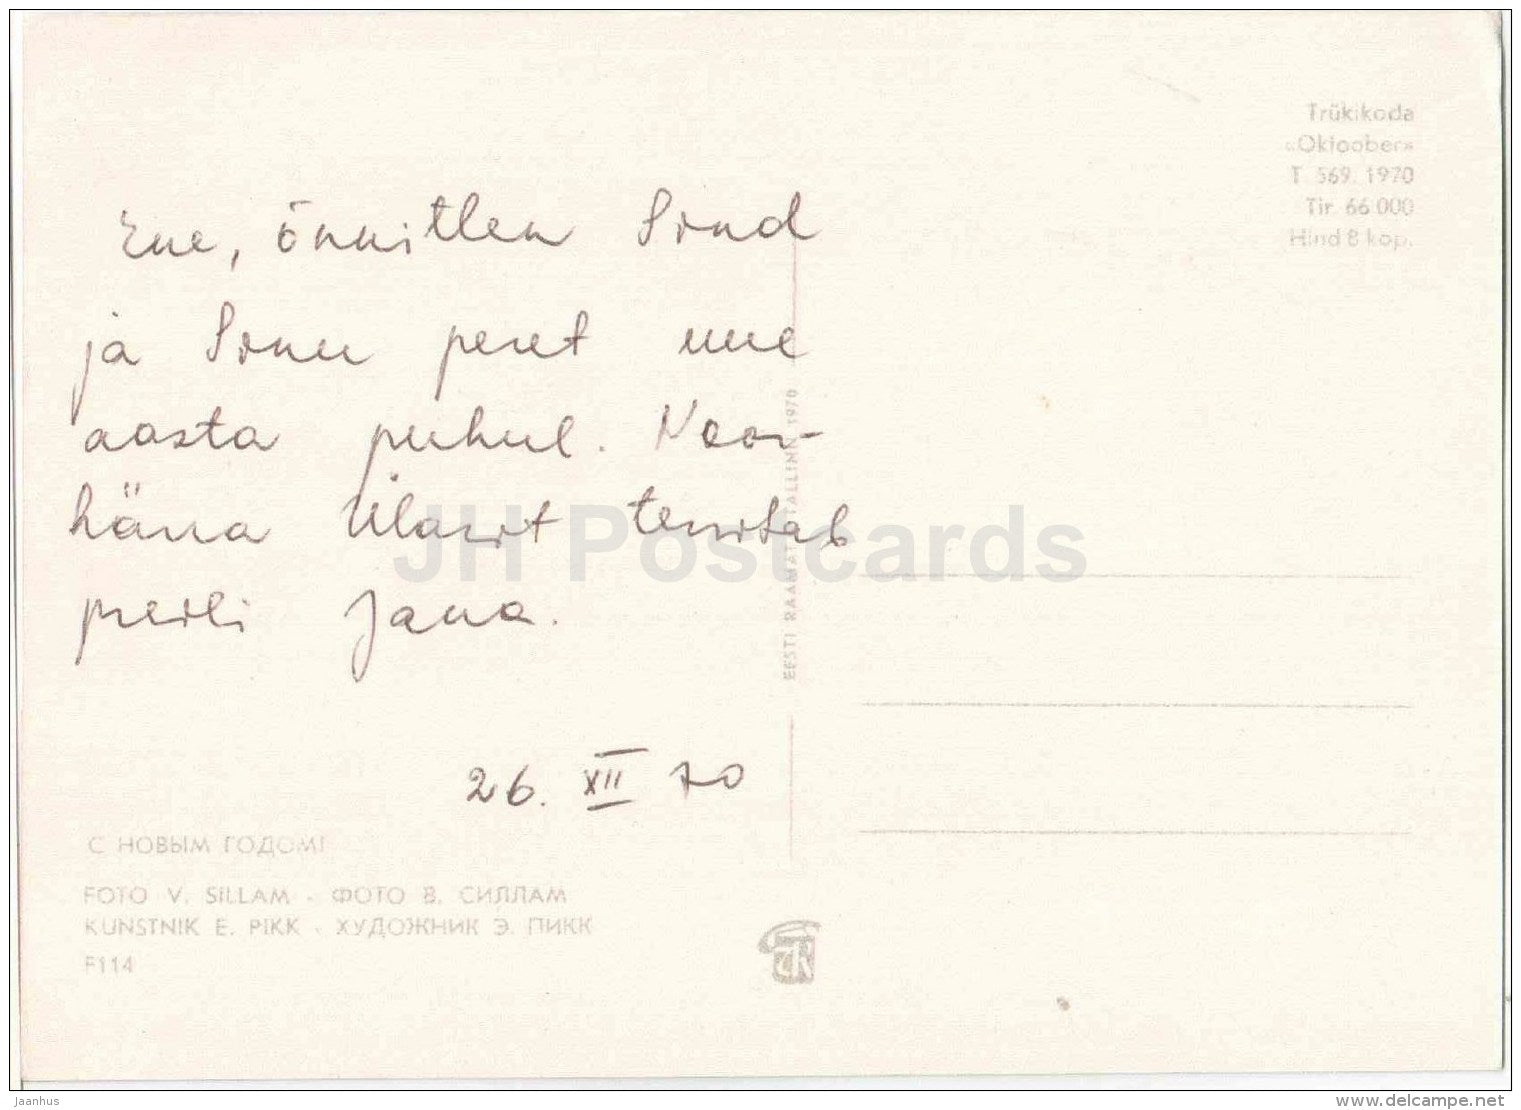 Trükikoda
«Oktoober»
T. 569. 1970
Tir. 66 000
Hind 8 kop.
Ene, õnnitlen Sind
ja Sinu peret uue
aasta puhul. Noor-
häna Ülarit tervitab
preili Jana.
26. XII 70
EESTI RAAMAT TALLINN 1970
С НОВЫМ ГОДОМ!
FOTO V. SILLAM · ФОТО В. СИЛЛАМ
KUNSTNIK E. PIKK · ХУДОЖНИК Э. ПИКК
F114
JH Postcards
Jaanhus
www.delcampe.net